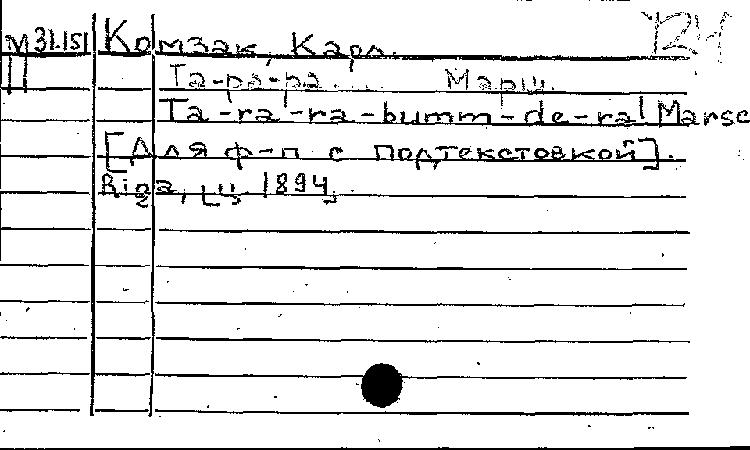 124
М 31.151 Комзак, Карл.
Та-ра-ра.... Марш.
Ta-ra-ra-bumm-de-ra! Marsc
[Для ф-п с подтекстовкой].
Riga, ц. 1894.